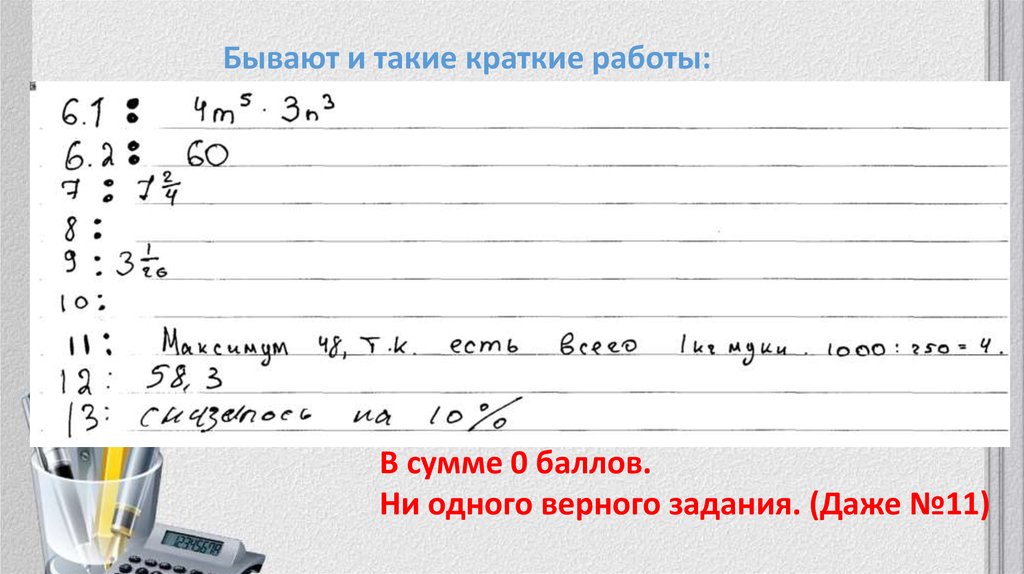 Бывают и такие краткие работы:
6.1 : 4m⁵ · 3n³
6.2 : 60
7 : 1 2/4
8 :
9 : 3 1/26
10 :
11 : Максимум 48, т.к. есть всего 1 кг муки. 1000 : 250 = 4.
12 : 58,3
13 : снизелось на 10%
В сумме 0 баллов.
Ни одного верного задания. (Даже №11)
12345678